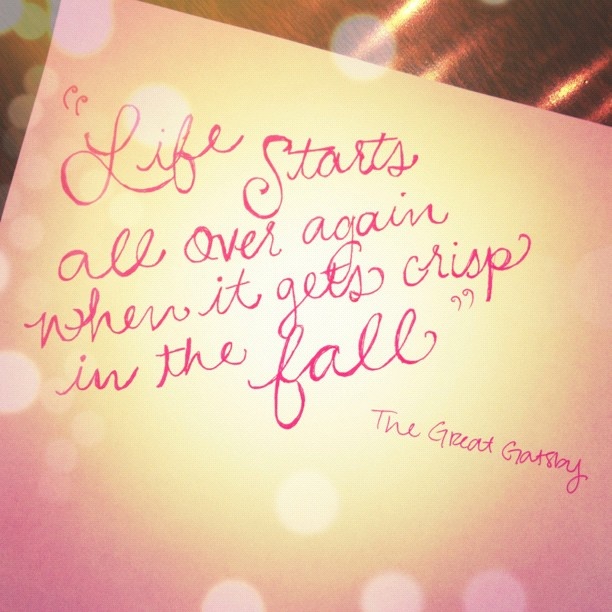 “Life Starts
all over again
when it gets crisp
in the fall”
The Great Gatsby